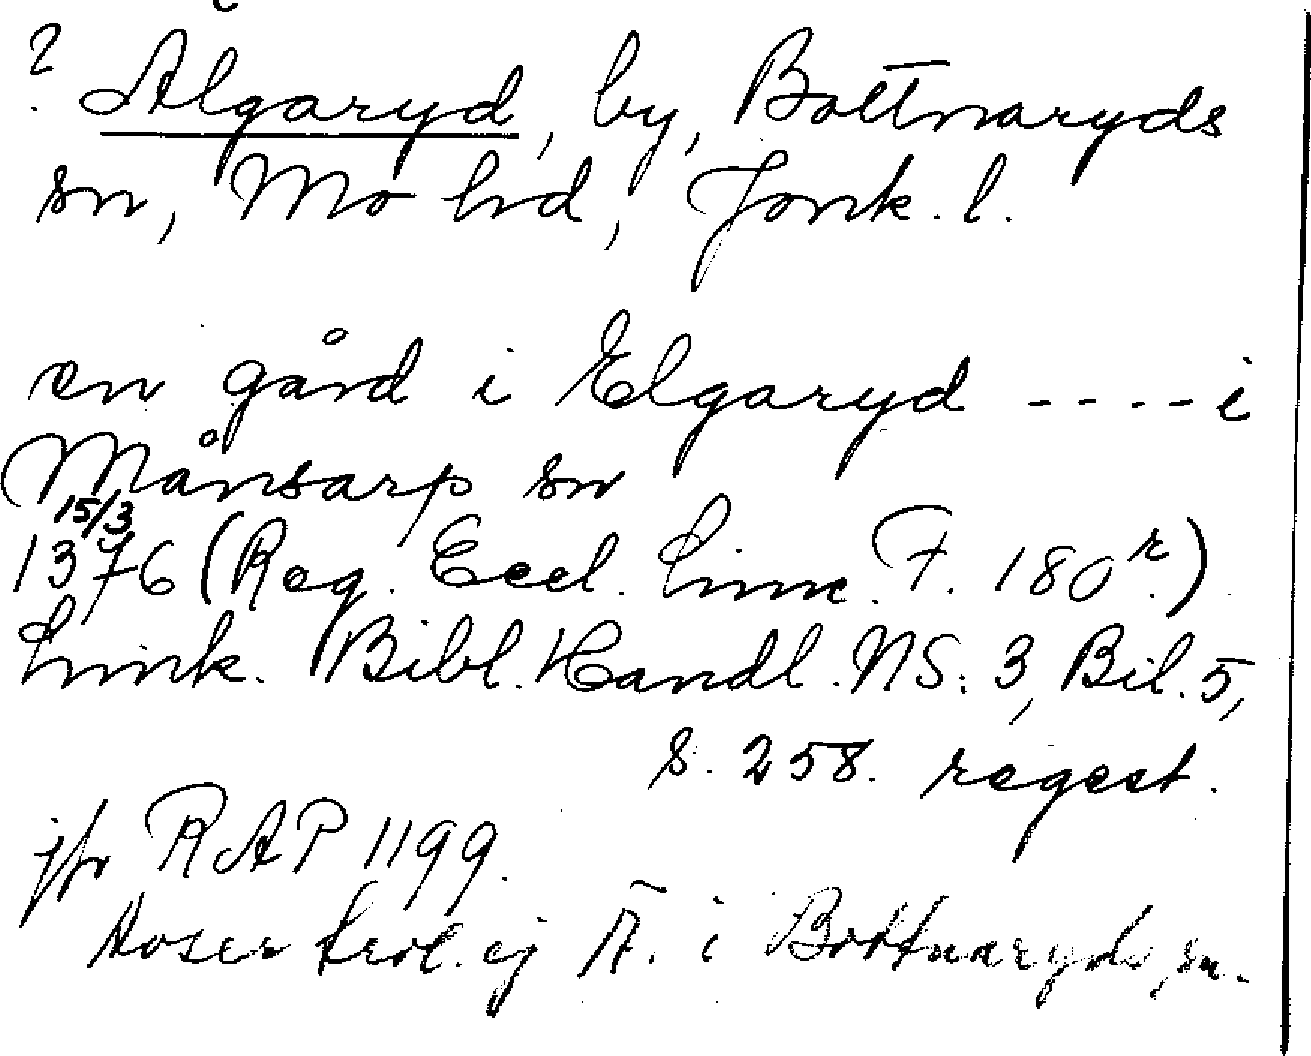 ? Älgaryd, by, Bottnaryds
sn, Mo hd, Jönk. l.
en gård i Elgaryd ---- i
Månsarp sn
15/3
1376 (Reg. Eccl. Linc. F. 180r.)
Link. Bibl. Handl. NS: 3, Bil. 5,
s. 258. regest.
jfr RAP 1199.
Avser trol. ej Ä. i Bottnaryds sn.